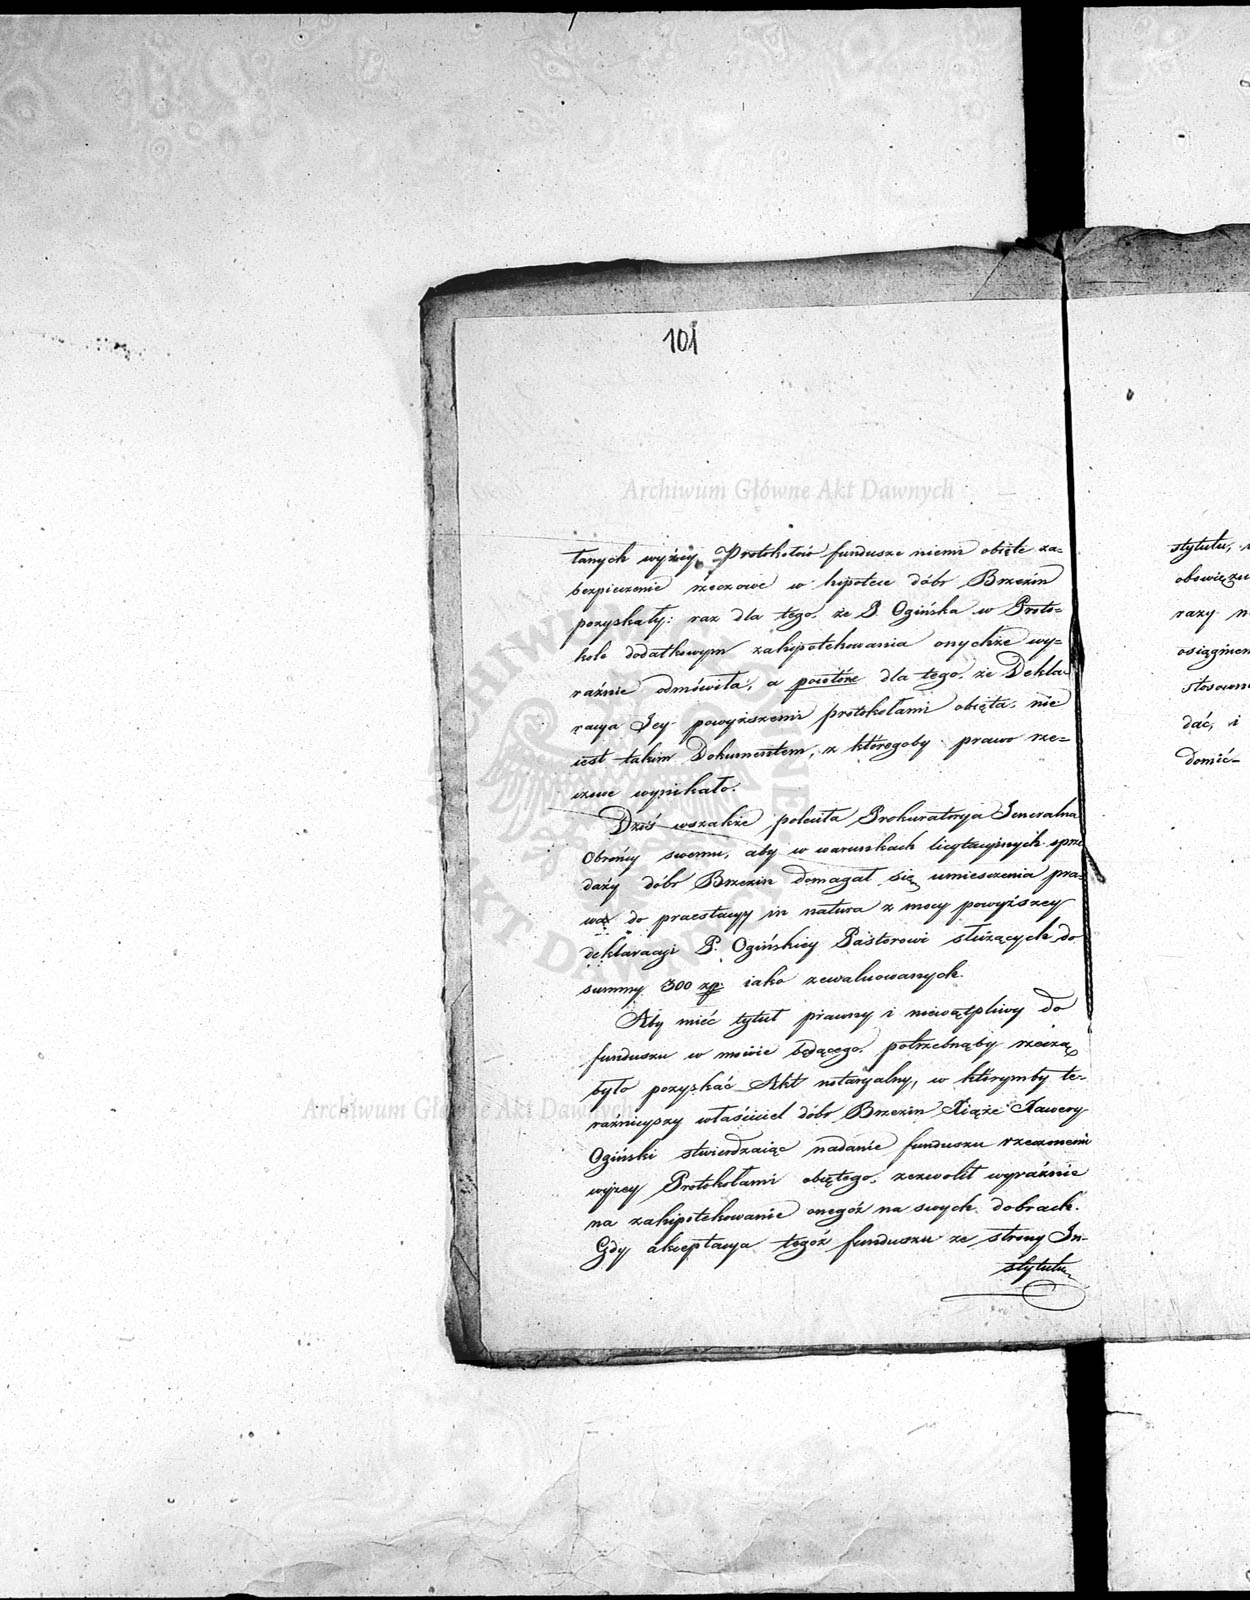 101
Archiwum Główne Akt Dawnych
tanych wyżey Protokołów fundusze niemi obięte za=
bezpieczenie rzeczowe w hipotece dóbr Brzezin
pozyskały: raz dla tego, że P. Ogińska w Proto=
kole dodatkowym zahipotekowania onychże wy=
raźnie odmówiła, a powtóre dla tego, że Dekla=
racya Jey powyższemi protokołami obięta, nie
iest takim Dokumentem, z któregoby prawo rze=
czowe wynikało.
Dziś wszakże poleciła Prokuratorya Jeneralna
Obrońcy swemu, aby w warunkach licytacyinych sprze
daży dóbr Brzezin domagał się umieszczenia pra=
wa do praestacyy in natura z mocy powyższey
deklaracyi P. Ogińskiey Pastorowi służących do
summy 300 zp. iako zewaluowanych.
Aby mieć tytuł prawny i niewątpliwy do
funduszu w mowie będącego, potrzebnąby rzeczą
było pozyskać Akt notaryalny, w którymby te=
raznieyszy właściciel dóbr Brzezin Xiąże Xawery
Ogiński stwierdzaiąc nadanie funduszu rzeczonemi
wyżey Protokołami obiętego, zezwolił wyraźnie
na zahipotekowanie onegóż na swych dobrach.
Gdy akceptacya tegoż funduszu ze strony In=
stytutu
Archiwum Główne Akt Dawnych
ARCHIWUM GŁÓWNE AKT DAWNYCH
stytutu,
obowiązu
razy
osiągnien
stosowni
dać, i
domić=